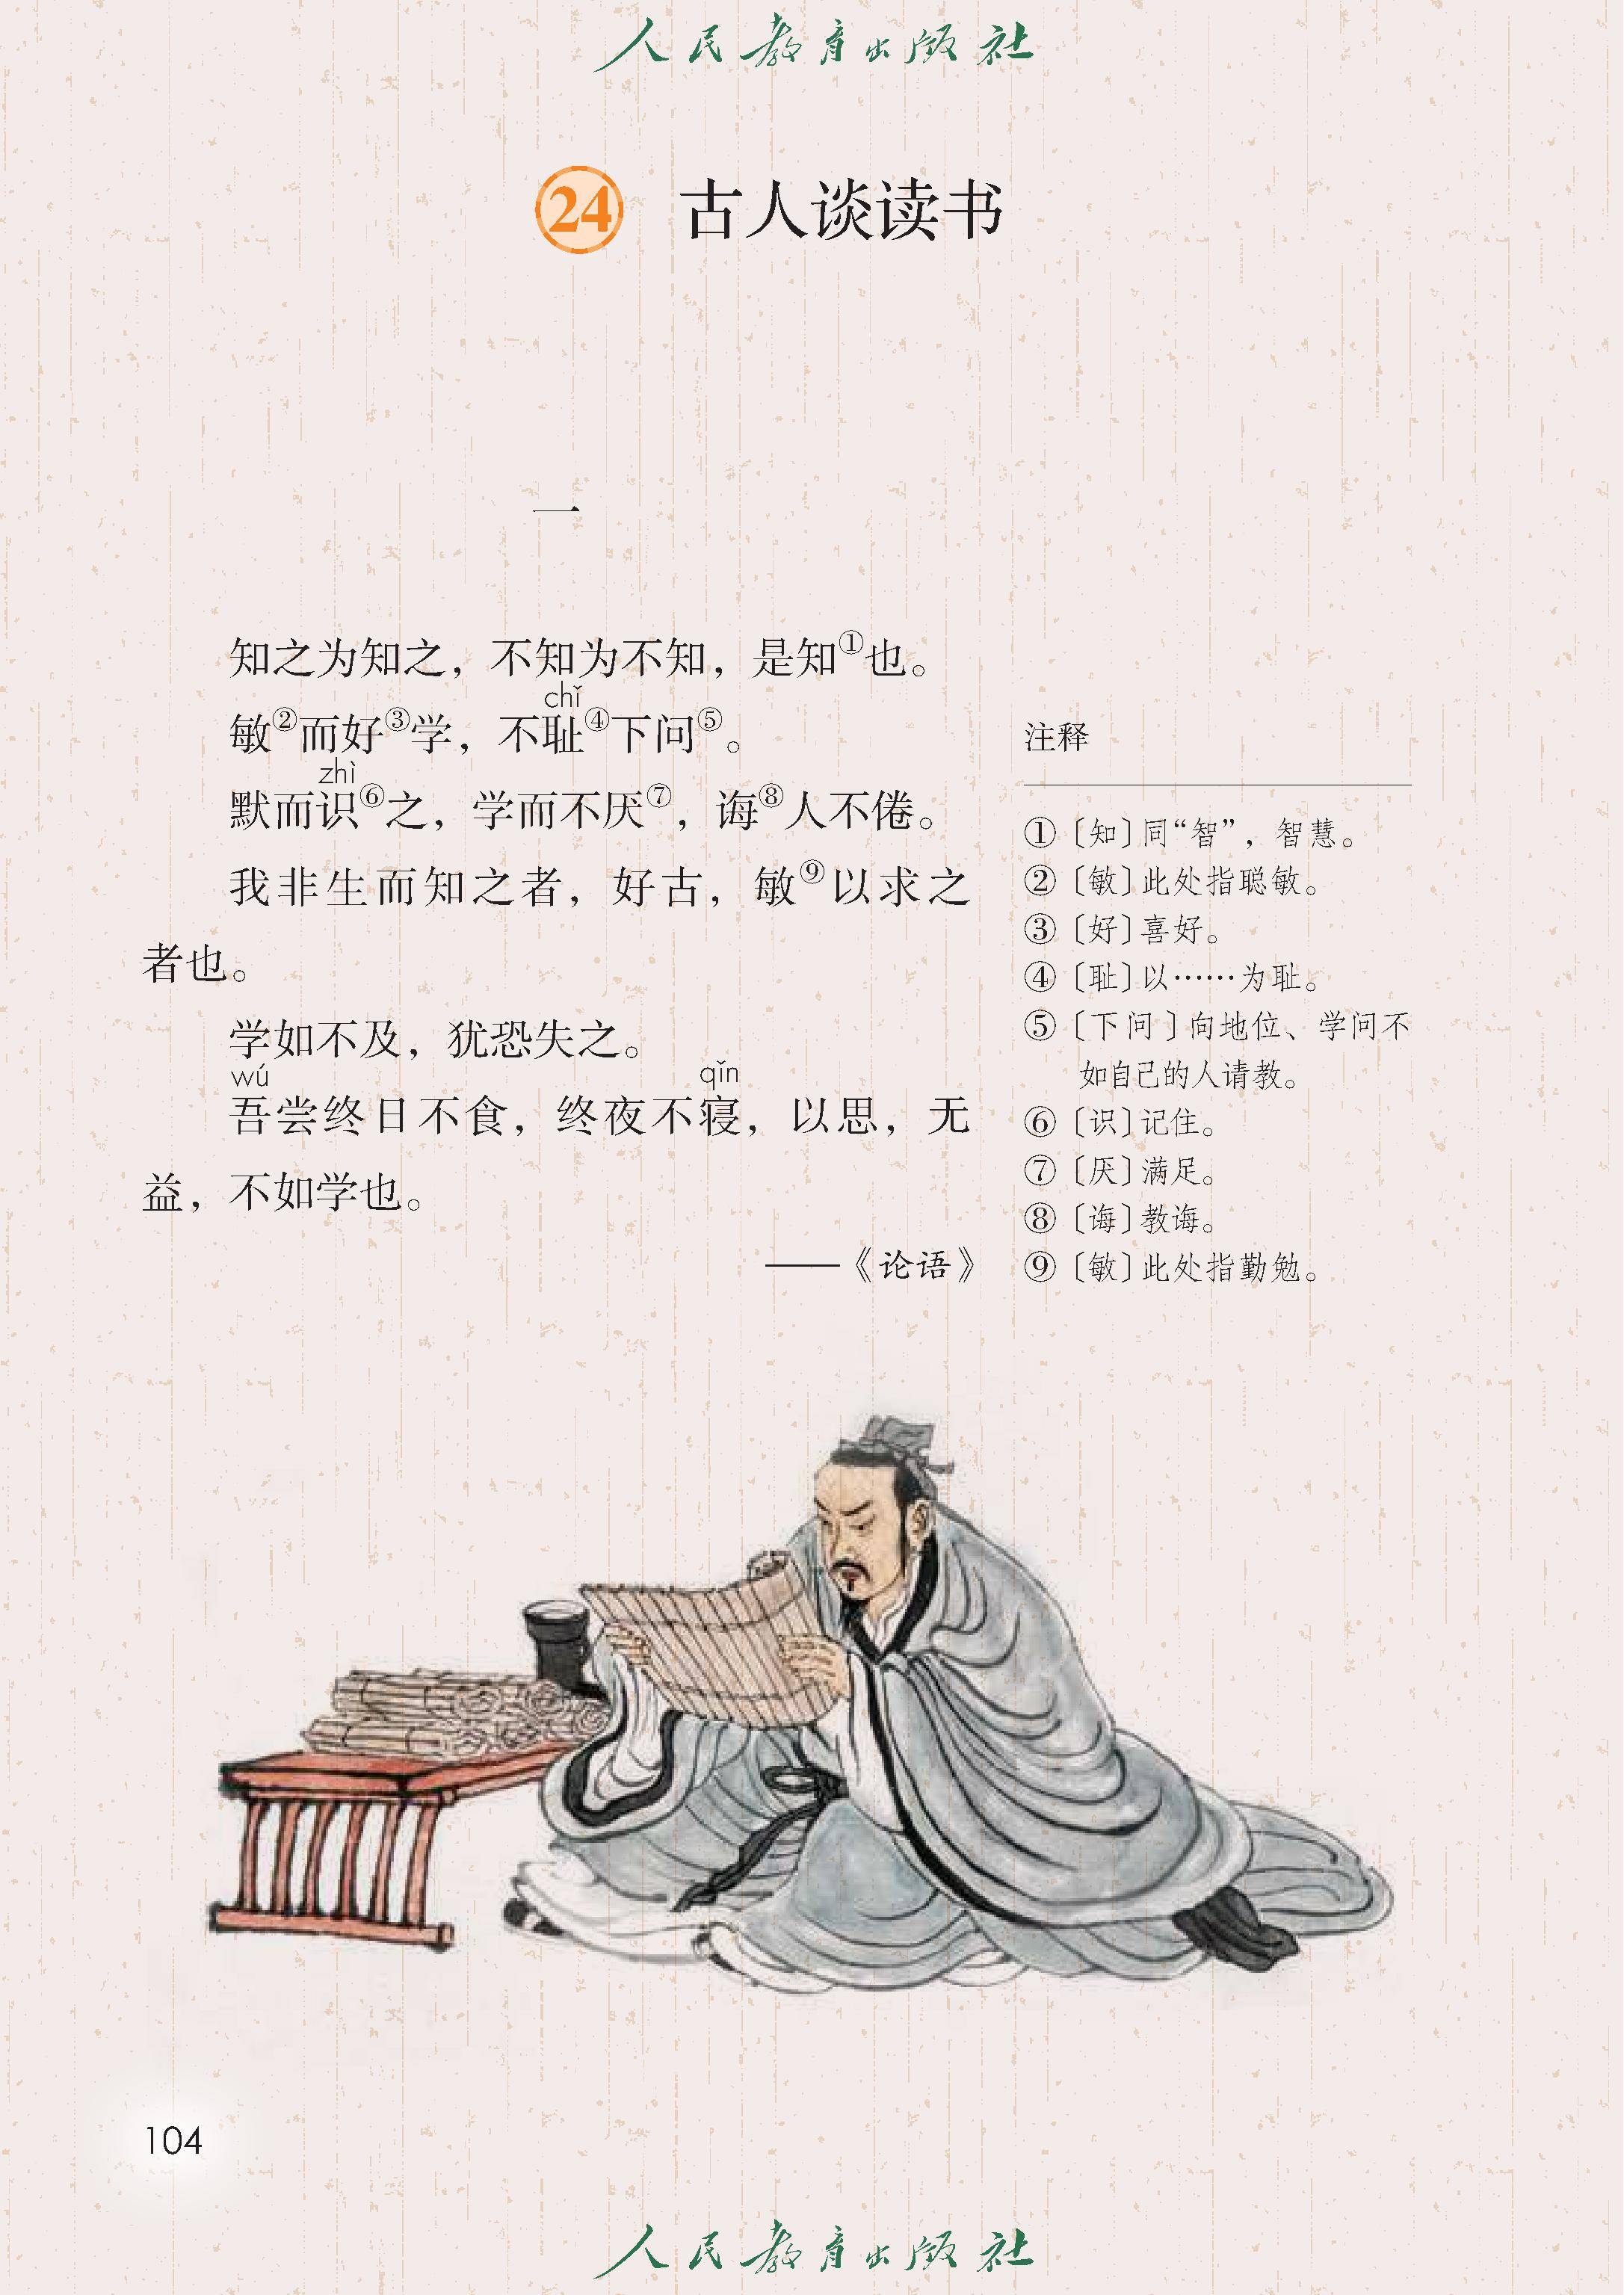 人民教育出版社
24 古人谈读书
一
知之为知之，不知为不知，是知①也。
chǐ
敏②而好③学，不耻④下问⑤。
zhì
默而识⑥之，学而不厌⑦，诲⑧人不倦。
我非生而知之者，好古，敏⑨以求之
者也。
学如不及，犹恐失之。
wú qǐn
吾尝终日不食，终夜不寝，以思，无
益，不如学也。
——《论语》
注释
①〔知〕同“智”，智慧。
②〔敏〕此处指聪敏。
③〔好〕喜好。
④〔耻〕以……为耻。
⑤〔下问〕向地位、学问不
如自己的人请教。
⑥〔识〕记住。
⑦〔厌〕满足。
⑧〔诲〕教诲。
⑨〔敏〕此处指勤勉。
104
人民教育出版社